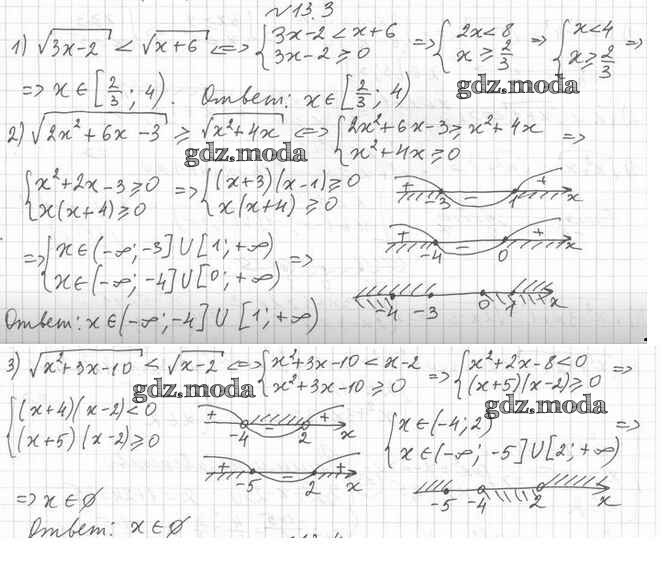 №13.3
1) √(3x-2) < √(x+6) <=> { 3x-2 < x+6 ; 3x-2 ≥ 0 => { 2x < 8 ; x ≥ 2/3 => { x < 4 ; x ≥ 2/3 =>
=> x ∈ [2/3; 4). Ответ: x ∈ [2/3; 4)
gdz.moda
2) √(2x²+6x-3) ≥ √(x²+4x) <=> { 2x²+6x-3 ≥ x²+4x ; x²+4x ≥ 0 =>
gdz.moda
{ x²+2x-3 ≥ 0 ; x(x+4) ≥ 0 => { (x+3)(x-1) ≥ 0 ; x(x+4) ≥ 0
+ -3 - 1 + x
+ -4 - 0 + x
=> { x ∈ (-∞; -3] ∪ [1; +∞) ; x ∈ (-∞; -4] ∪ [0; +∞) =>
-4 -3 0 1 x
Ответ: x ∈ (-∞; -4] ∪ [1; +∞)
3) √(x²+3x-10) < √(x-2) <=> { x²+3x-10 < x-2 ; x²+3x-10 ≥ 0 => { x²+2x-8 < 0 ; (x+5)(x-2) ≥ 0 =>
gdz.moda
gdz.moda
{ (x+4)(x-2) < 0 ; (x+5)(x-2) ≥ 0
+ -4 - 2 + x
+ -5 - 2 + x
{ x ∈ (-4; 2) ; x ∈ (-∞; -5] ∪ [2; +∞) =>
-5 -4 2 x
=> x ∈ ∅
Ответ: x ∈ ∅